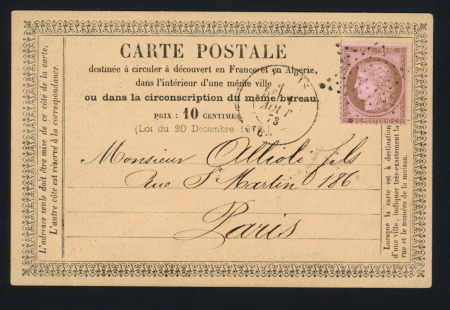 CARTE POSTALE
destinée à circuler à découvert en France et en Algérie,
dans l'intérieur d'une même ville
ou dans la circonscription du même bureau.
PRIX : 10 CENTIMES
(Loi du 20 Décembre 1872.)
AOUT
73
Monsieur Alliole fils
Rue St Martin 186
Paris
L'adresse seule doit être mise de ce côté de la carte.
L'autre côté est réservé à la correspondance.
Lorsque la carte est à destination
d'une ville, indiquer très-exactement la
rue et le numéro de la maison.